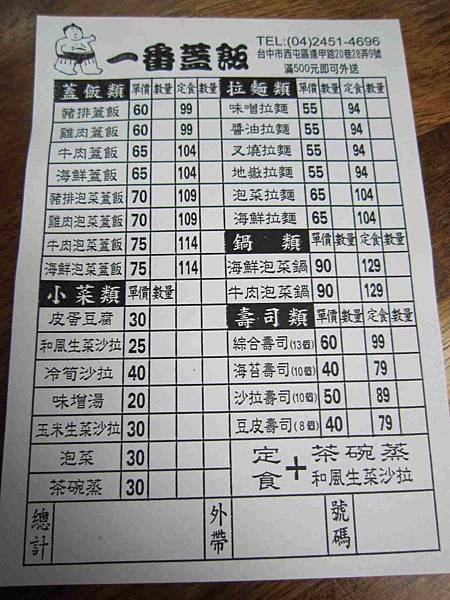 一番蓋飯
TEL:(04)2451-4696
台中市西屯區逢甲路20巷28弄9號
滿500元即可外送
蓋飯類 單價 數量 定食 數量
豬排蓋飯 60 99
雞肉蓋飯 60 99
牛肉蓋飯 65 104
海鮮蓋飯 65 104
豬排泡菜蓋飯 70 109
雞肉泡菜蓋飯 70 109
牛肉泡菜蓋飯 75 114
海鮮泡菜蓋飯 75 114
小菜類 單價 數量
皮蛋豆腐 30
和風生菜沙拉 25
冷筍沙拉 40
味增湯 20
玉米生菜沙拉 30
泡菜 30
茶碗蒸 30
拉麵類 單價 數量 定食 數量
味噌拉麵 55 94
醬油拉麵 55 94
叉燒拉麵 55 94
地嶽拉麵 55 94
泡菜拉麵 65 104
海鮮拉麵 65 104
鍋類 單價 數量 定食 數量
海鮮泡菜鍋 90 129
牛肉泡菜鍋 90 129
壽司類 單價 數量 定食 數量
綜合壽司(13個) 60 99
海苔壽司(10個) 40 79
沙拉壽司(10個) 50 89
豆皮壽司(8個) 40 79
定食+茶碗蒸
和風生菜沙拉
總計 外帶 號碼